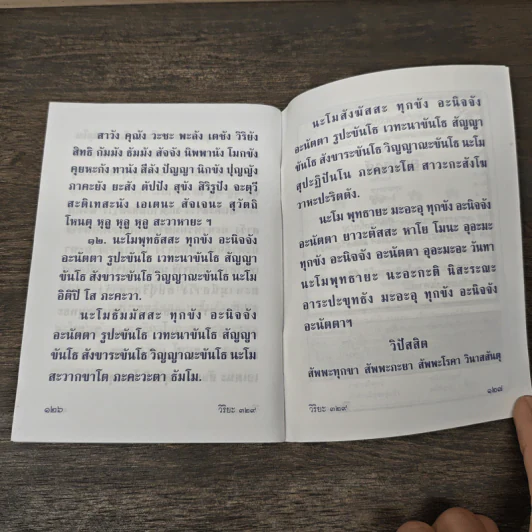 สาวัง คุณัง วะชะ พะลัง เตชัง วิริยัง
สิทธิ กัมมัง ธัมมัง สัจจัง นิพพานัง โมกขัง
คุยหะกัง ทานัง สีลัง ปัญญา นิกขัง ปุญญัง
ภาคะยัง ยะสัง ตัปปัง สุขัง สิริรูปัง จะตุวี
สะติเทสะนัง เอเตนะ สัจเจนะ สุวัตถิ
โหนตุ หุลู หุลู หุลู สะวาหายะ ฯ
๑๒. นะโมพุทธัสสะ ทุกขัง อะนิจจัง
อะนัตตา รูปะขันโธ เวทะนาขันโธ สัญญา
ขันโธ สังขาระขันโธ วิญญาณะขันโธ นะโม
อิติปิ โส ภะคะวา.
นะโมธัมมัสสะ ทุกขัง อะนิจจัง
อะนัตตา รูปะขันโธ เวทะนาขันโธ สัญญา
ขันโธ สังขาระขันโธ วิญญาณะขันโธ นะโม
สะวากขาโต ภะคะวะตา ธัมโม.
๑๒๖
วิริยะ ๓๒๙
นะโมสังฆัสสะ ทุกขัง อะนิจจัง
อะนัตตา รูปะขันโธ เวทะนาขันโธ สัญญา
ขันโธ สังขาระขันโธ วิญญาณะขันโธ นะโม
สุปะฏิปันโน ภะคะวะโต สาวะกะสังโฆ
วาหะปะริตตัง.
นะโม พุทธายะ มะอะอุ ทุกขัง อะนิจจัง
อะนัตตา ยาวะตัสสะ หาโย โมนะ อุอะมะ
ทุกขัง อะนิจจัง อะนัตตา อุอะมะอะ วันทา
นะโมพุทธายะ นะอะกะติ นิสะระณะ
อาระปะขุทธัง มะอะอุ ทุกขัง อะนิจจัง
อะนัตตาฯ
วิปัสสิต
สัพพะทุกขา สัพพะภะยา สัพพะโรคา วินาสสันตุ
วิริยะ ๓๒๙
๑๒๗